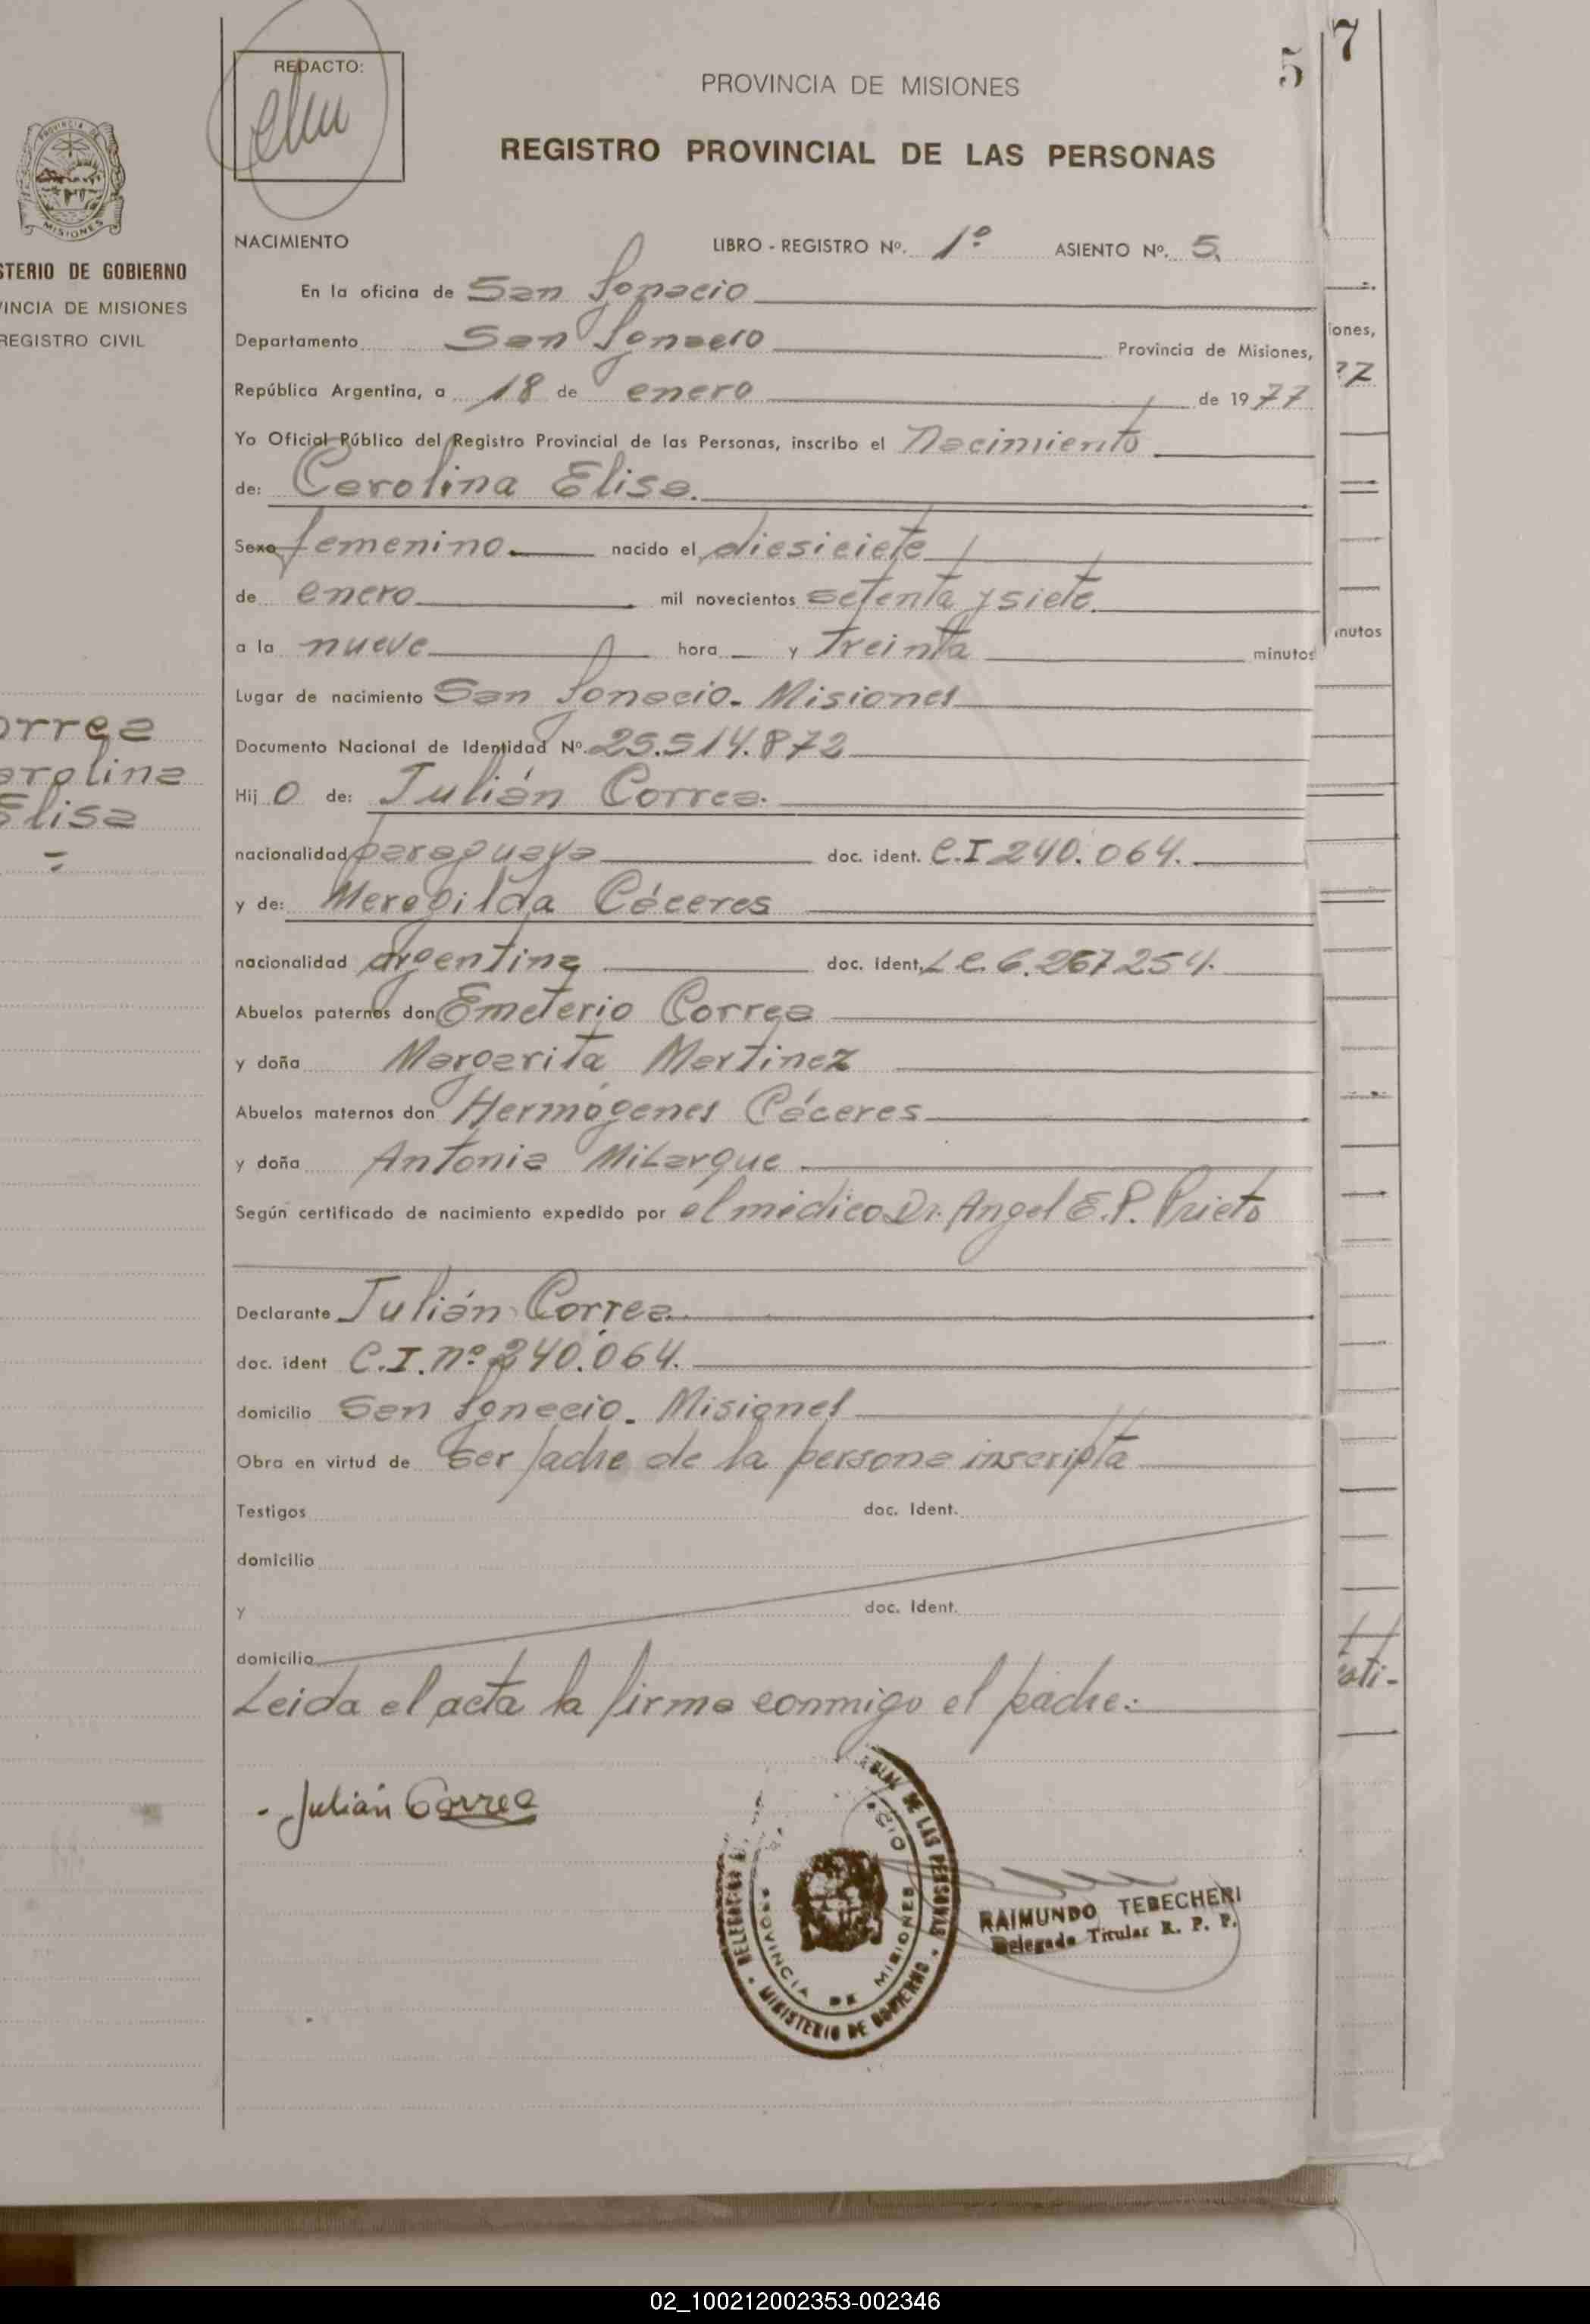 REDACTO:
5
7
PROVINCIA DE MISIONES
REGISTRO PROVINCIAL DE LAS PERSONAS
MISIONES
STERIO DE GOBIERNO
VINCIA DE MISIONES
REGISTRO CIVIL
orrea
arolina
Elisa
NACIMIENTO LIBRO - REGISTRO Nº. 1º ASIENTO Nº. 5.
En la oficina de San Ignacio
Departamento San Ignacio Provincia de Misiones,
República Argentina, a 18 de enero de 1977
Yo Oficial Público del Registro Provincial de las Personas, inscribo el Nacimiento
de: Carolina Elisa.
Sexo femenino. nacido el diesiciete
de enero mil novecientos setenta y siete.
a la nueve hora y treinta minutos
Lugar de nacimiento San Ignacio. Misiones
Documento Nacional de Identidad Nº. 25.514.872
Hij O de: Julián Correa.
nacionalidad paraguaya doc. ident. C.I 240.064.
y de: Meregilda Cáceres
nacionalidad argentina doc. ident. L C. 6.267254.
Abuelos paternos don Emeterio Correa
y doña Margarita Martinez
Abuelos maternos don Hermógenes Cáceres
y doña Antonia
Según certificado de nacimiento expedido por el médico Dr. Angel E.P. Prieto
Declarante Julián Correa.
doc. ident C.I. nº 240.064.
domicilio San Ignacio. Misiones
Obra en virtud de ser padre de la persona inscripta
Testigos doc. Ident.
domicilio
y doc. Ident.
domicilio
Leida el acta la firma conmigo el padre:
Julián Correa
DE LAS PERSONAS
MINISTERIO DE GOBIERNO
PROVINCIA DE MISIONES
RAIMUNDO TEBECHERI
Delegado Titular R. P. P.
iones,
77
inutos
02_100212002353-002346